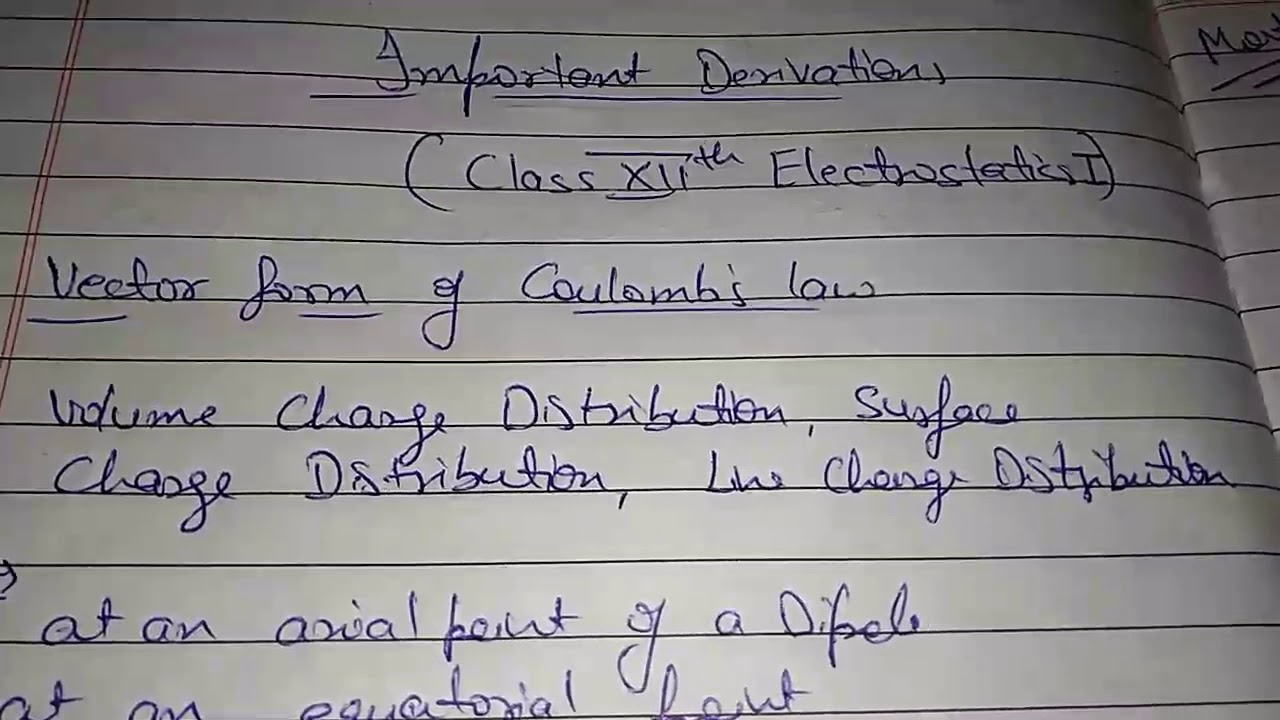 Important Derivations
(Class XIIth Electrostatics I)
Vector form of Coulomb's law
Volume Charge Distribution, Surface
Charge Distribution, Line Charge Distribution
at an axial point of a Dipole
at an equatorial point